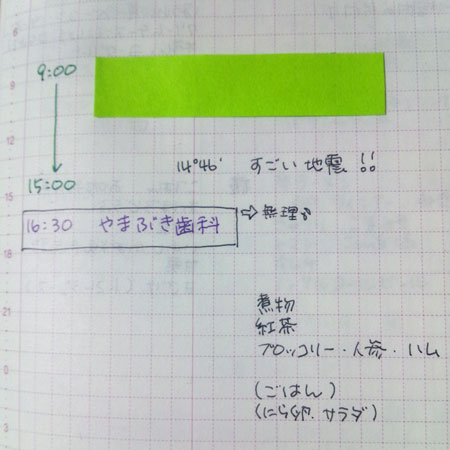 6
9:00
9
12
14°46' すごい地震!!
15:00
15
16:30 やまぶき歯科
⇨無理
18
煮物
紅茶
21
ブロッコリー・人参・ハム
(ごはん)
(にら卵.サラダ)
3